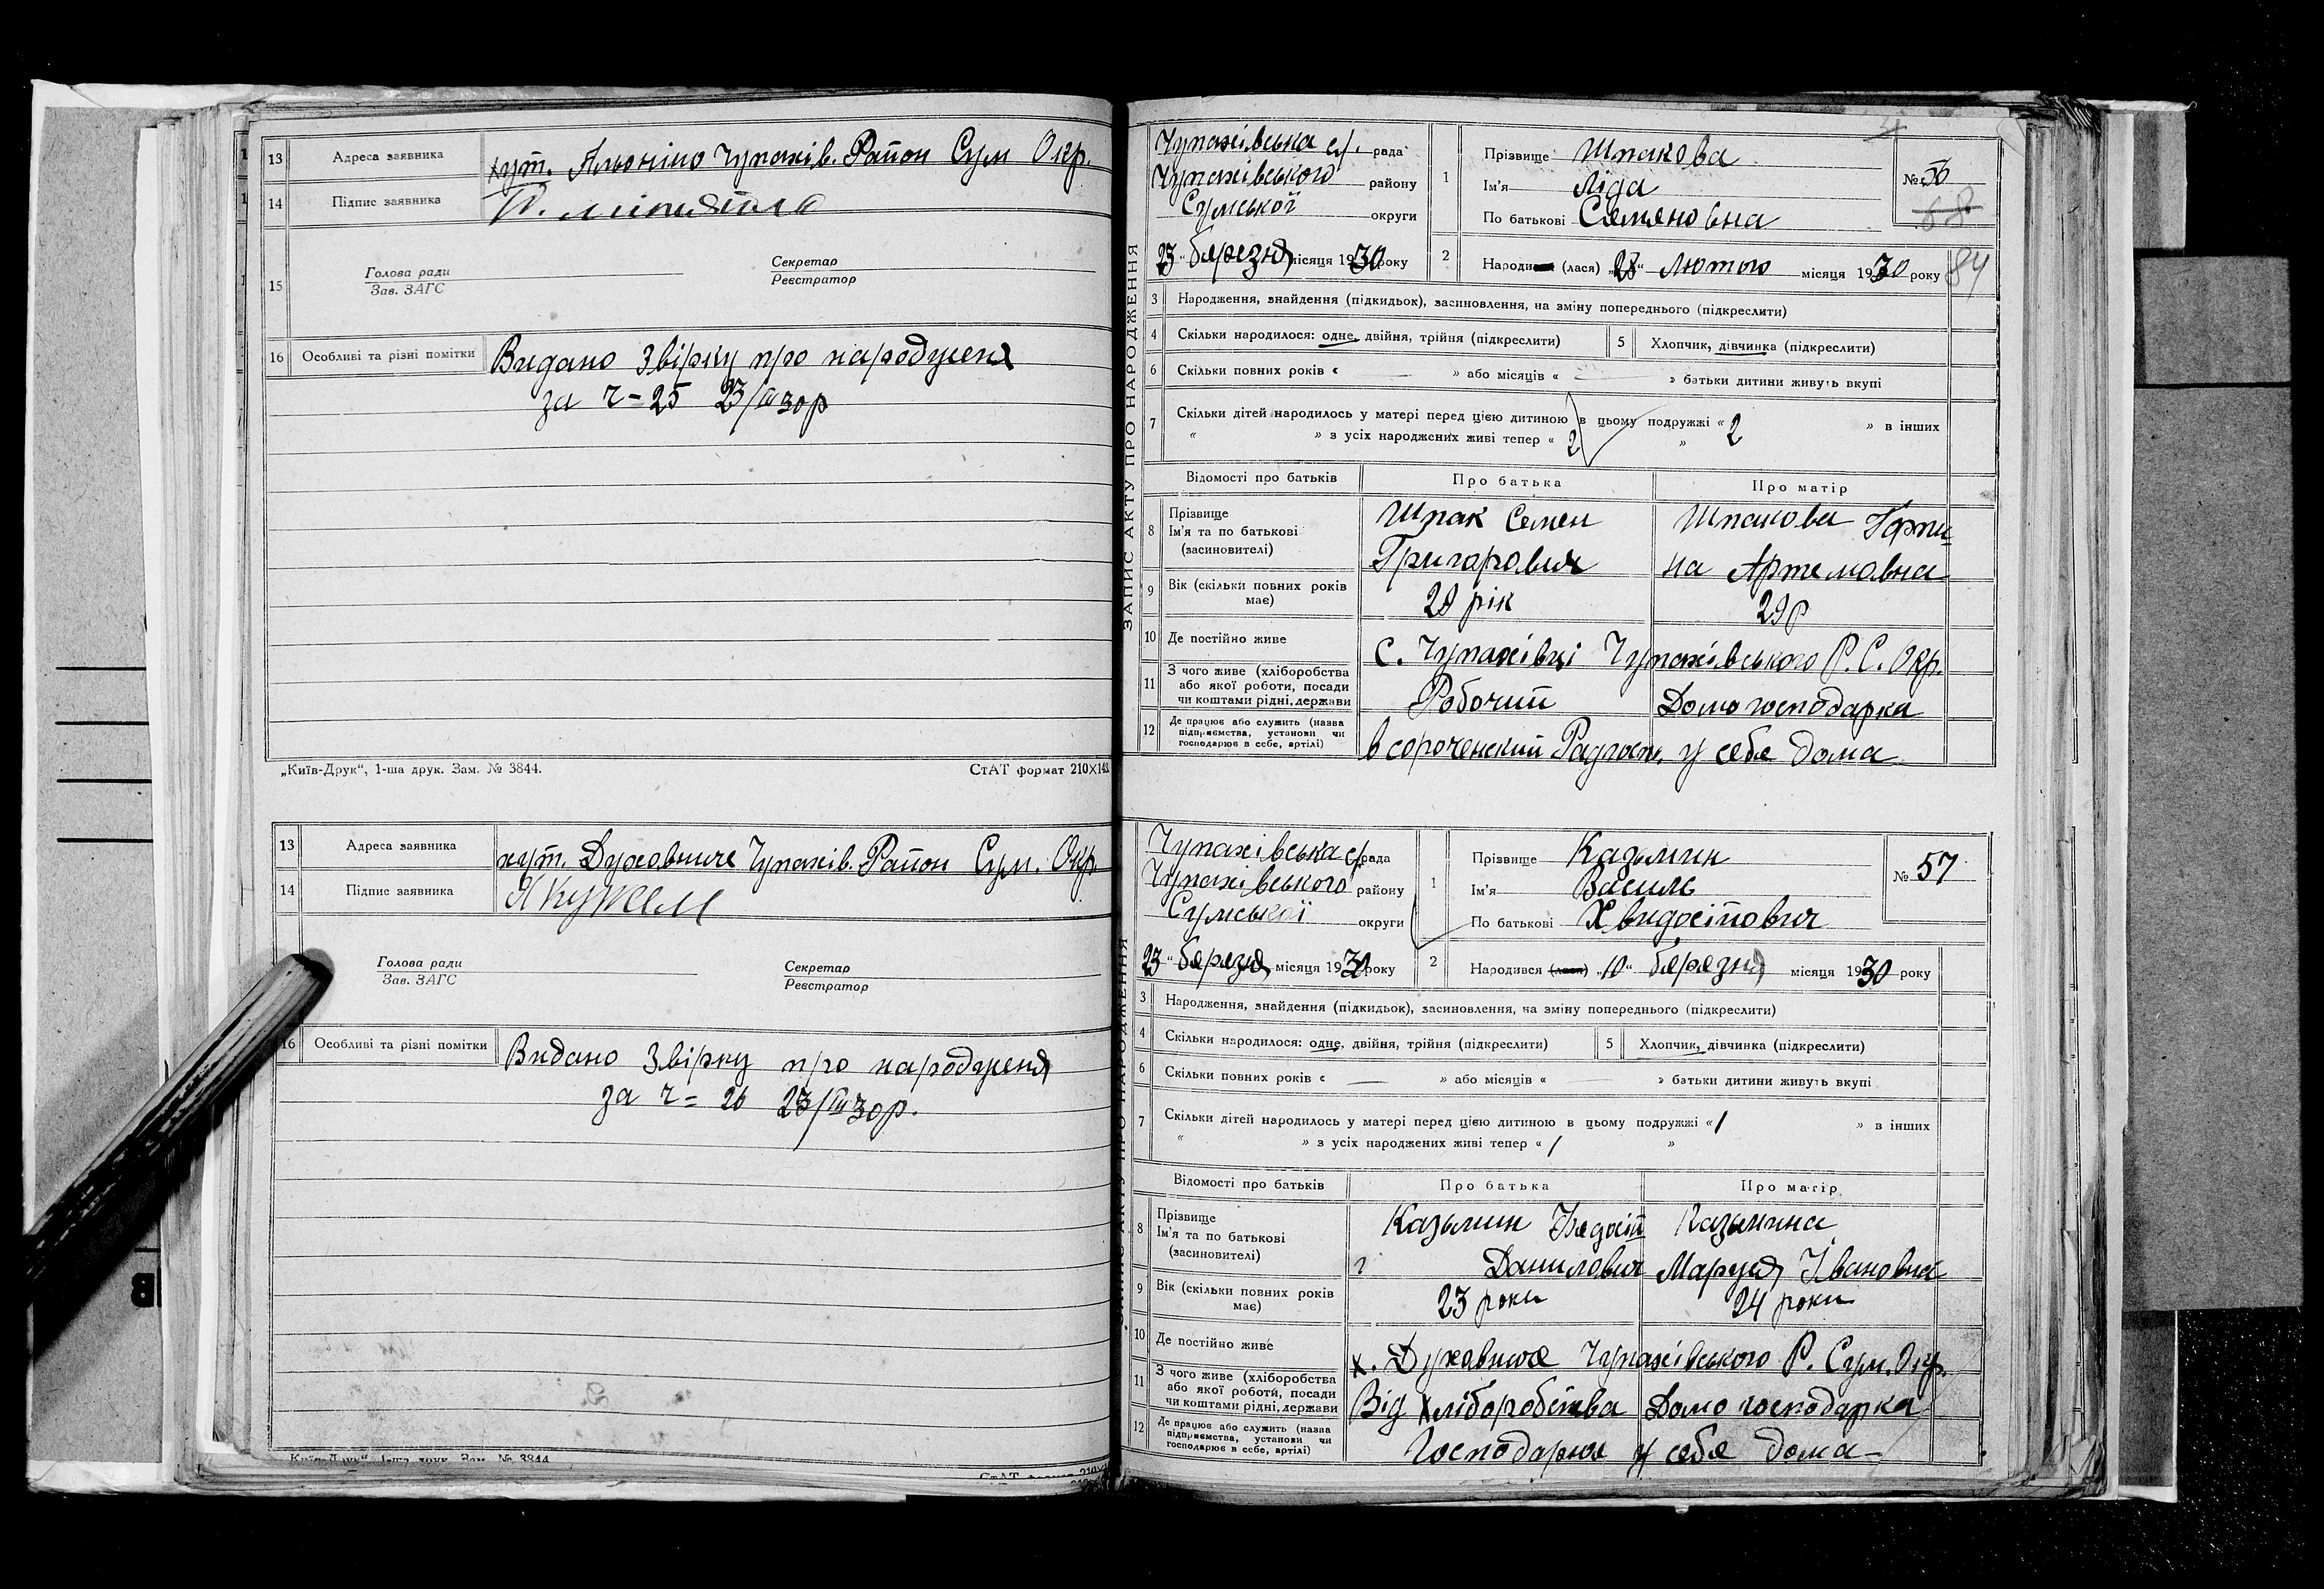 13 Адреса заявника хут. Альоніно Чупахів. Район Сум Окр.
14 Підпис заявника
15 Голова ради
Зав. ЗАГС
Секретар
Реєстратор
16 Особливі та різні помітки Видано Звірку про народженя
за ч= 25 23/III 30р
„Київ-Друк“, 1-ша друк. Зам. № 3844. СтАТ формат 210×14
13 Адреса заявника хут. Духовниче Чупахів. Район Сум. Окр
14 Підпис заявника
Голова ради
Зав. ЗАГС
Секретар
Реєстратор
16 Особливі та різні помітки Видано Звірку про народженя
за ч= 26 23/III 30р.
Київ-Друк“, 1-ша друк. Зам. № 3844
СтАТ формат 210×1
ЗАПИС АКТУ ПРО НАРОДЖЕННЯ
Чупахівська с/. рада
Чупахівського району
Сумської округи
23 „ березня місяця 1930 року
1 Прізвище Шпакова
Ім'я Ліда
По батькові Семеновна
№ 56
68
84
2 Народи (лася) „28“ Лютого місяця 1930 року
3 Народження, знайдення (підкидьок), засиновлення, на зміну попереднього (підкреслити)
4 Скільки народилося: одне, двійня, трійня (підкреслити) 5 Хлопчик, дівчинка (підкреслити)
6 Скільки повних років « — » або місяців « — » батьки дитини живуть вкупі
7 Скільки дітей народилось у матері перед цією дитиною в цьому подружжі « 2 » в інших
« » з усіх народжених живі тепер « 2 »
Відомості про батьків Про батька Про матір
8 Прізвище Ім'я та по батькові (засиновителі) Шпак Семен Григорович Шпакова Горпина Артемовна
9 Вік (скільки повних років має) 28 рік 29р
10 Де постійно живе с. Чупахівці Чупахівського Р. С. Окр.
11 З чого живе (хліборобства або якої роботи, посади чи коштами рідні, держави Робочий Домогосподарка
12 Де працює або служить (назва підприємства, установи чи господарює в себе, артілі) в сороченский Радгосп. у себе дома
ЗАПИС АКТУ ПРО НАРОДЖЕННЯ
Чупахівська с/. рада
Чупахівського району
Сумської округи
23 „ березня місяця 1930 року
1 Прізвище Казьмин
Ім'я Василь
По батькові Хвидосійович
№ 57
2 Народився (лася) „10“ березня місяця 1930 року
3 Народження, знайдення (підкидьок), засиновлення, на зміну попереднього (підкреслити)
4 Скільки народилося: одне, двійня, трійня (підкреслити) 5 Хлопчик, дівчинка (підкреслити)
6 Скільки повних років « — » або місяців « — » батьки дитини живуть вкупі
7 Скільки дітей народилось у матері перед цією дитиною в цьому подружжі « 1 » в інших
« » з усіх народжених живі тепер « 1 »
Відомості про батьків Про батька Про матір
8 Прізвище Ім'я та по батькові (засиновителі) Казьмин Данилович Казьмина Маруся Івановна
9 Вік (скільки повних років має) 23 роки 24 роки
10 Де постійно живе х. Духовниче Чупахівського Р. Сум. Окр.
11 З чого живе (хліборобства або якої роботи, посади чи коштами рідні, держави Від хліборобства Домогосподарка
12 Де працює або служить (назва підприємства, установи чи господарює в себе, артілі) Господарює у себе дома